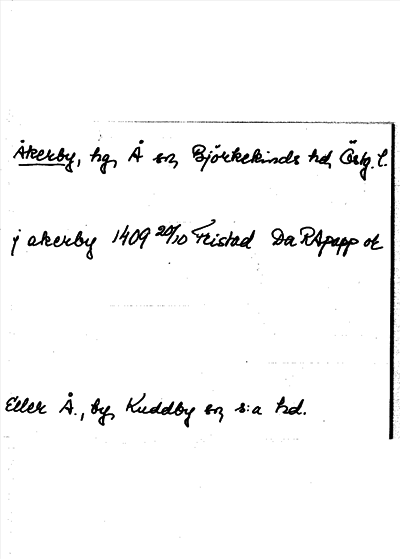 Åkerby, hg, Å sn, Björkekinds hd, Östg. l.
j akerby 1409 20/10 Fristad Da RApapp ok
Eller Å., by, Kuddby sn, s:a hd.